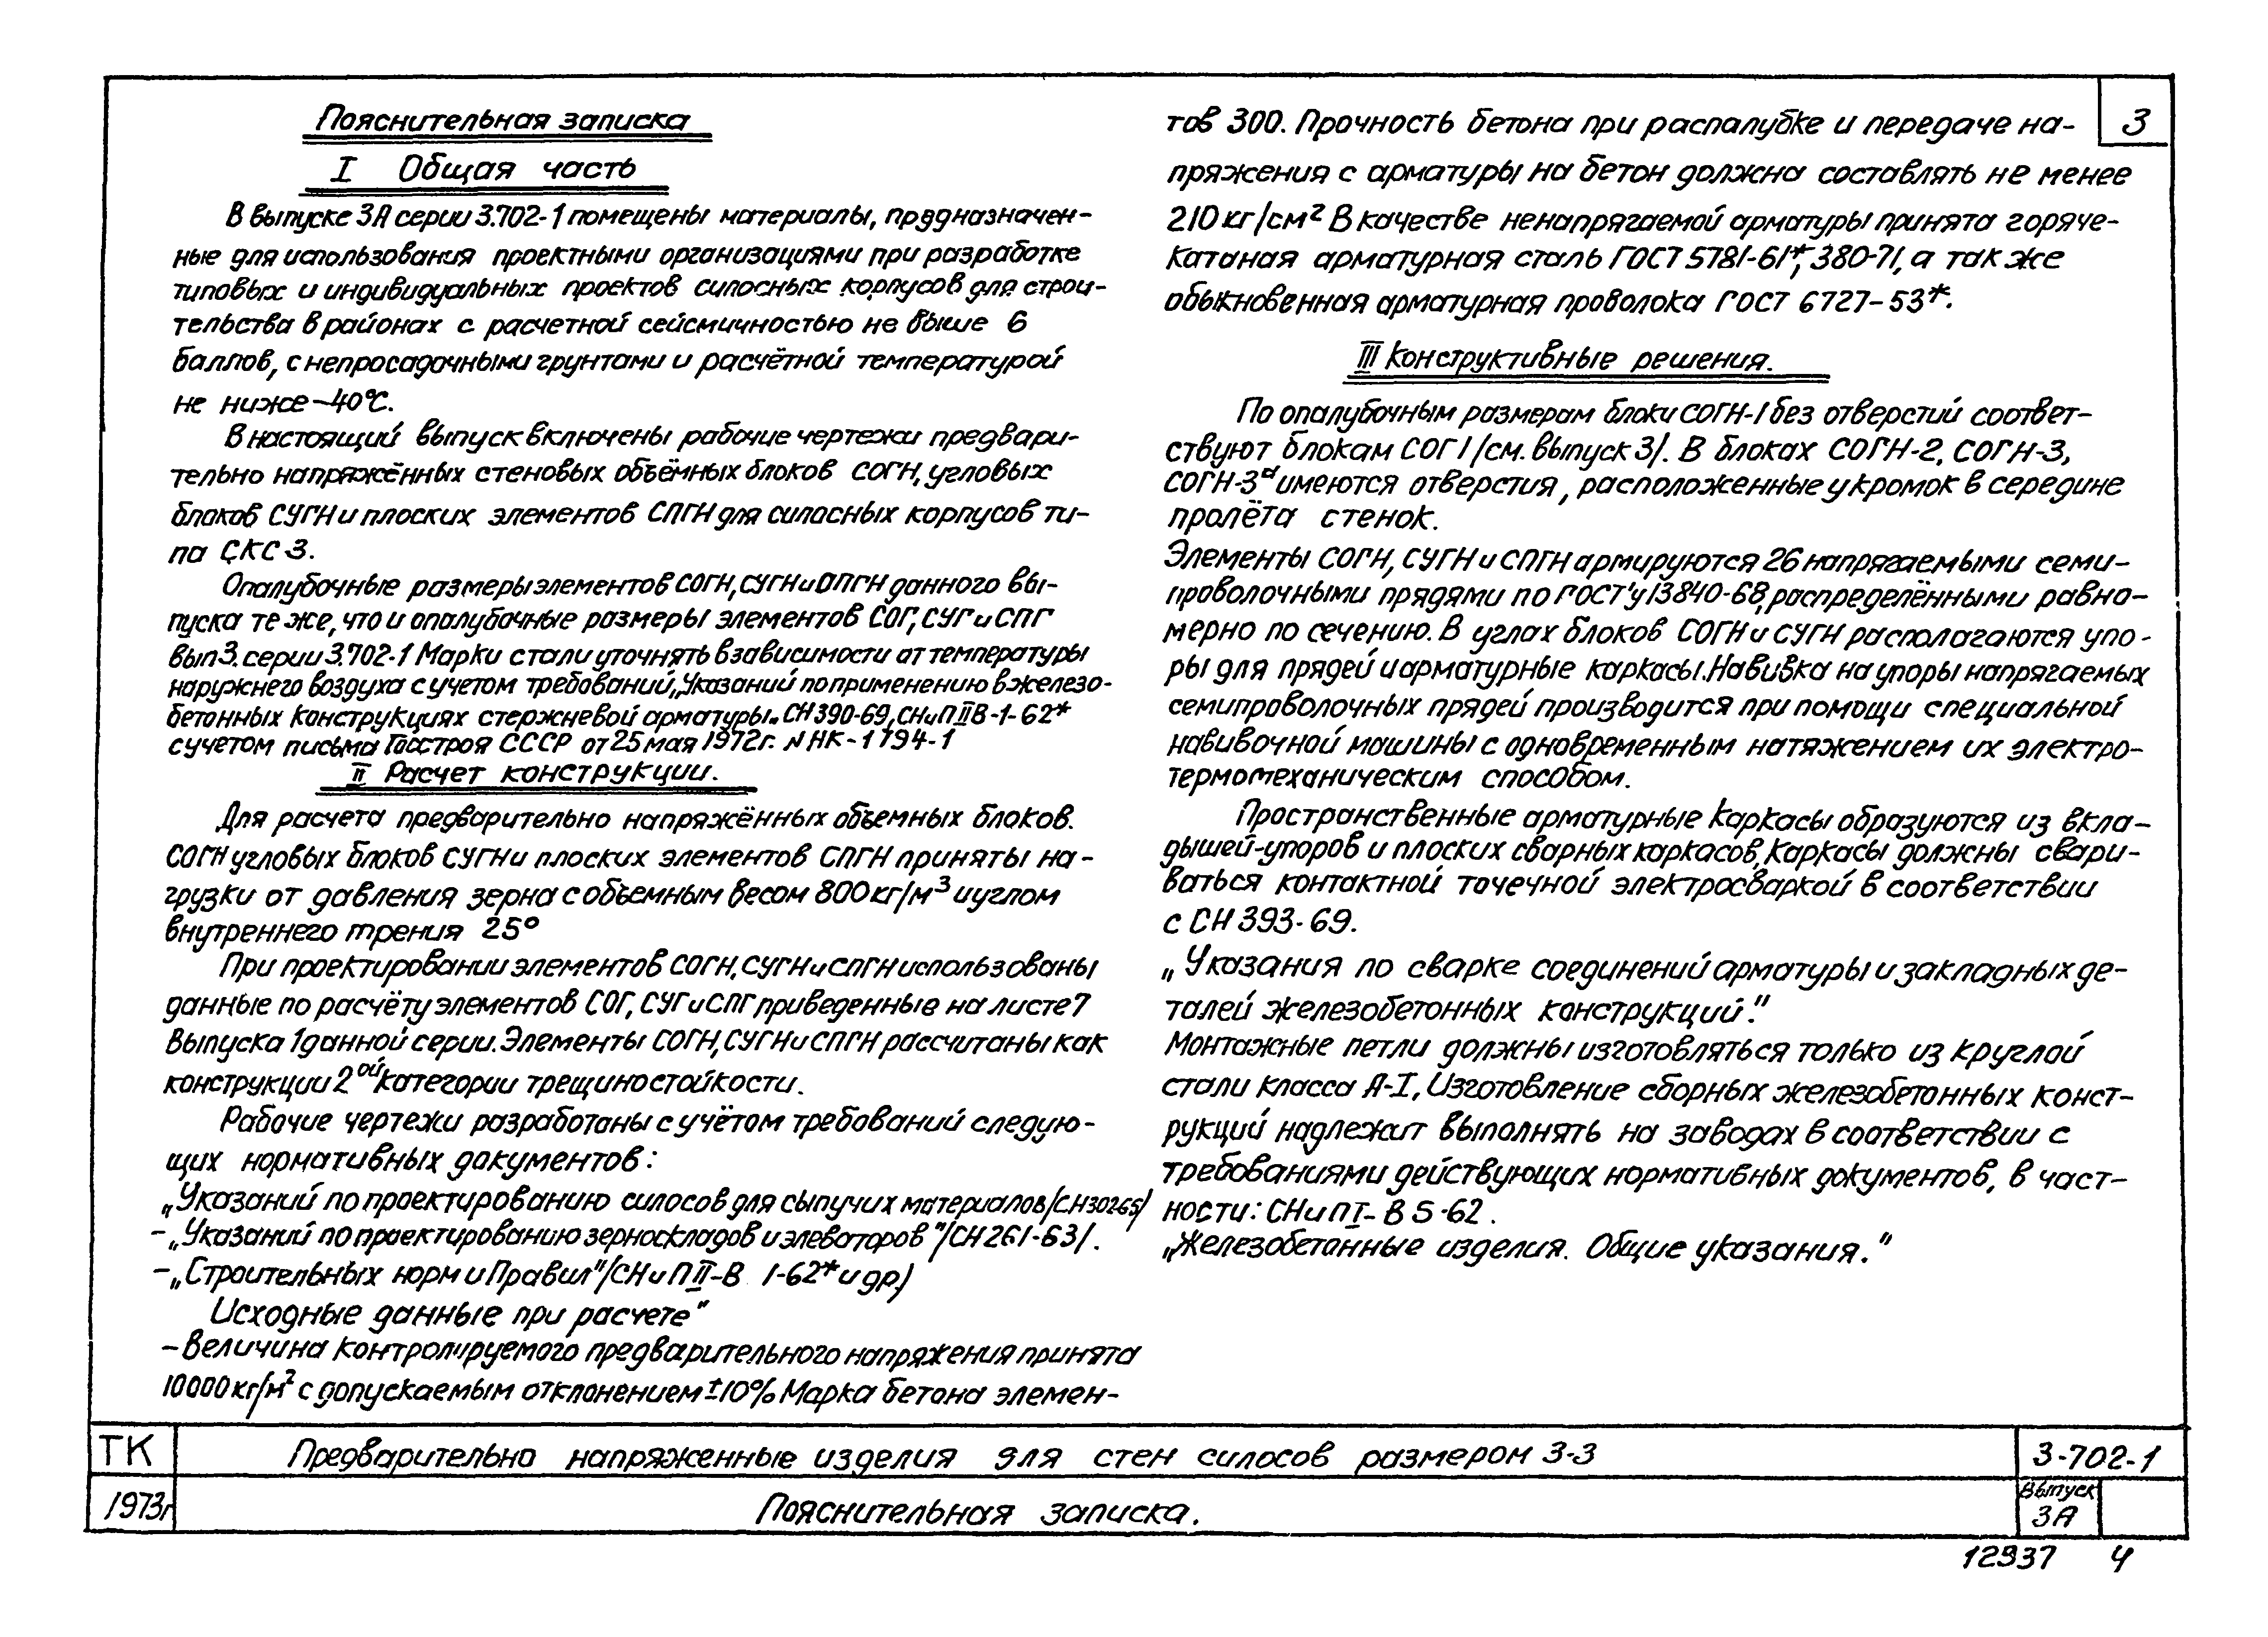 Пояснительная записка
I Общая часть
В выпуске 3А серии 3.702-1 помещены материалы, предназначен-
ные для использования проектными организациями при разработке
типовых и индивидуальных проектов силосных корпусов для строи-
тельства в районах с расчетной сейсмичностью не выше 6
баллов, с непросадочными грунтами и расчётной температурой
не ниже -40°С.
В настоящий выпуск включены рабочие чертежи предвари-
тельно напряжённых стеновых объёмных блоков СОГН, угловых
блоков СУГН и плоских элементов СПГН для силосных корпусов ти-
па СКС-3.
Опалубочные размеры элементов СОГН, СУГН и СПГН данного вы-
пуска те же, что и опалубочные размеры элементов СОГ, СУГ и СПГ
вып 3. серии 3.702-1 Марки стали уточнять в зависимости от температуры
наружнего воздуха с учетом требований „Указаний по применению в железо-
бетонных конструкциях стержневой арматуры„ СН 390-69, СНиП II В-1-62*
с учетом письма Госстроя СССР от 25 мая 1972г. N НК-1794-1
II Расчет конструкции.
Для расчета предварительно напряжённых объемных блоков.
СОГН угловых блоков СУГН и плоских элементов СПГН приняты на-
грузки от давления зерна с объемным весом 800 кг/м³ и углом
внутреннего трения 25°
При проектировании элементов СОГН, СУГН и СПГН использованы
данные по расчёту элементов СОГ, СУГ и СПГ приведенные на листе 7
Выпуска 1 данной серии. Элементы СОГН, СУГН и СПГН рассчитаны как
конструкции 2ой категории трещиностойкости.
Рабочие чертежи разработаны с учётом требований следую-
щих нормативных документов:
„Указаний по проектированию силосов для сыпучих материалов /СН 302-65/
- „Указаний по проектированию зерноскладов и элеваторов"/СН 261-63/.
- „Строительных норм и Правил"/СНиП II-В 1-62* и др.)
Исходные данные при расчете"
- Величина контролируемого предварительного напряжения принята
10000 кг/м² с допускаемым отклонением ±10% Марка бетона элемен-
тов 300. Прочность бетона при распалубке и передаче на-
пряжения с арматуры на бетон должна составлять не менее
210 кг/см² В качестве ненапрягаемой арматуры принята горяче-
катаная арматурная сталь ГОСТ 5781-61*, 380-71, а так же
обыкновенная арматурная проволока ГОСТ 6727-53*.
III Конструктивные решения.
По опалубочным размерам блоки СОГН-1 без отверстий соответ-
ствуют блокам СОГ 1 /см. выпуск 3/. В блоках СОГН-2, СОГН-3,
СОГН-3а имеются отверстия, расположенные у кромок в середине
пролёта стенок.
Элементы СОГН, СУГН и СПГН армируются 26 напрягаемыми семи-
проволочными прядями по ГОСТ'у 13840-68, распределёнными равно-
мерно по сечению. В углах блоков СОГН и СУГН располагаются упо-
ры для прядей и арматурные каркасы. Навивка на упоры напрягаемых
семипроволочных прядей производится при помощи специальной
навивочной машины с одновременным натяжением их электро-
термомеханическим способом.
Пространственные арматурные каркасы образуются из вкла-
дышей-упоров и плоских сварных каркасов. Каркасы должны свари-
ваться контактной точечной электросваркой в соответствии
с СН 393-69.
„Указания по сварке соединений арматуры и закладных де-
талей железобетонных конструкций."
Монтажные петли должны изготовляться только из круглой
стали класса А-I, Изготовление сборных железобетонных конст-
рукций надлежит выполнять на заводах в соответствии с
требованиями действующих нормативных документов, в част-
ности: СНиП I-В 5-62.
„Железобетонные изделия. Общие указания."
3
ТК
1973г
Предварительно напряженные изделия для стен силосов размером 3-3
Пояснительная записка.
3-702-1
Выпуск
3А
12937 4